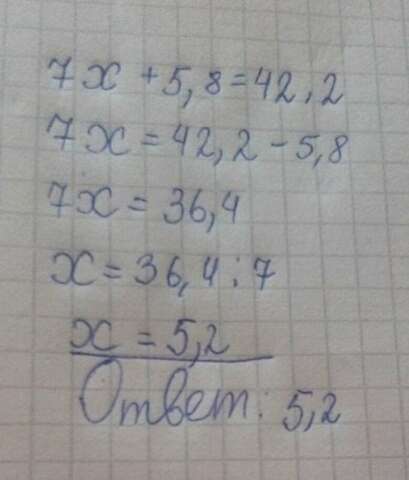 7x + 5,8 = 42,2
7x = 42,2 - 5,8
7x = 36,4
x = 36,4 : 7
x = 5,2
Ответ: 5,2